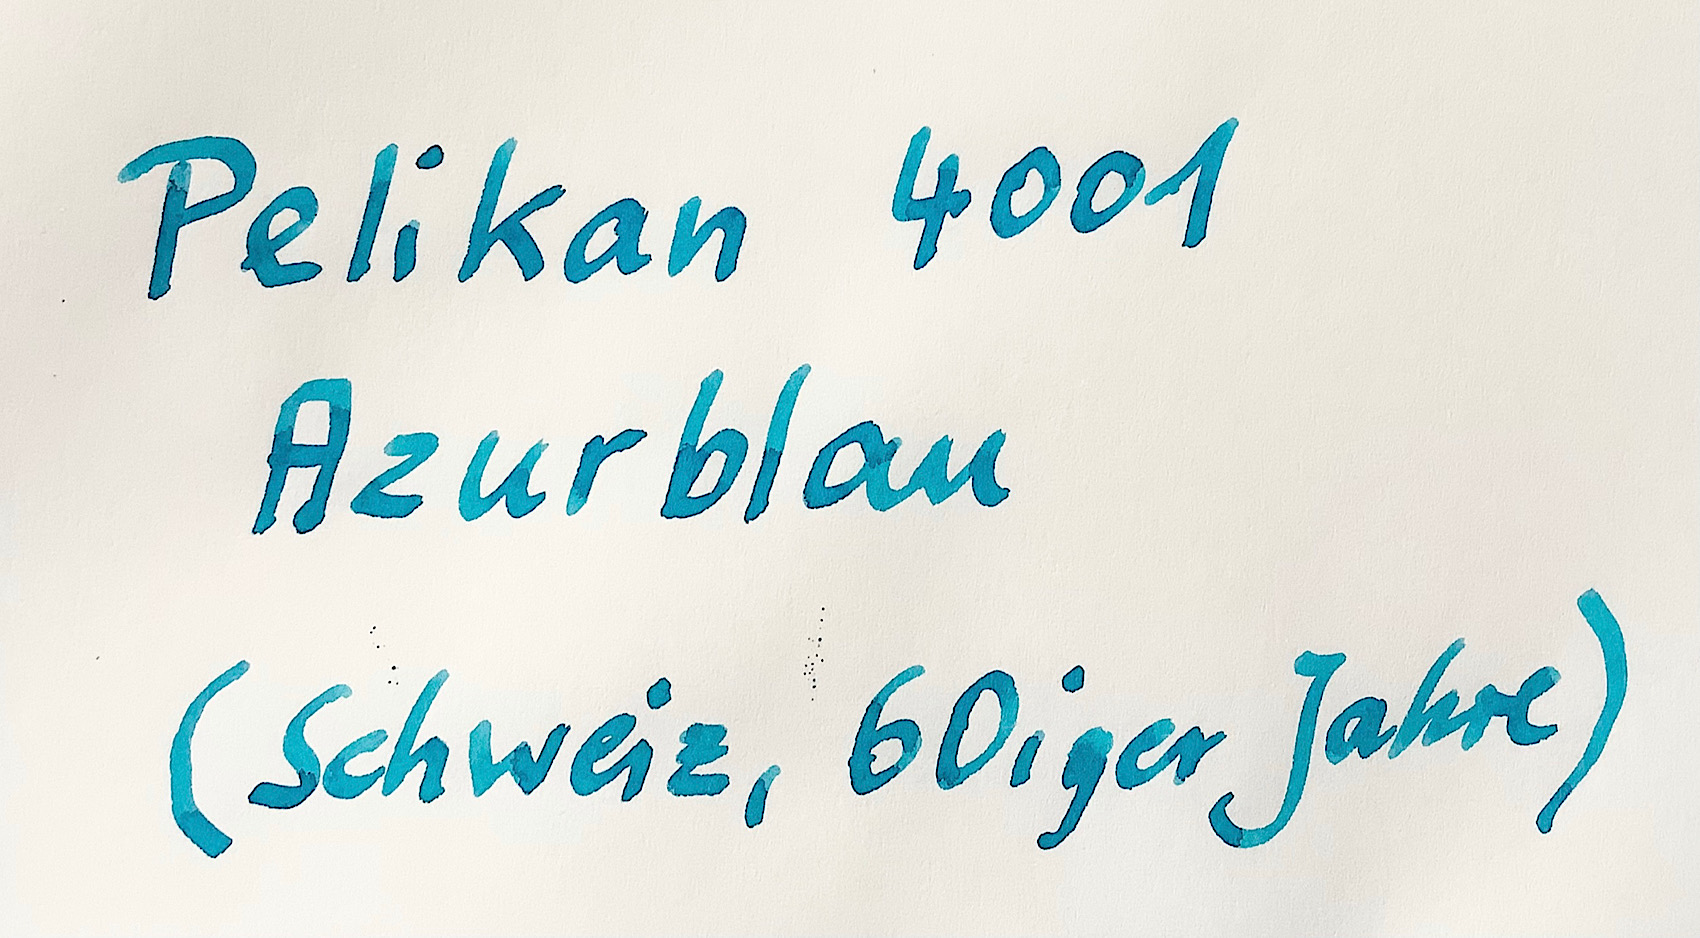 Pelikan 4001
Azurblau
(Schweiz, 60iger Jahre)